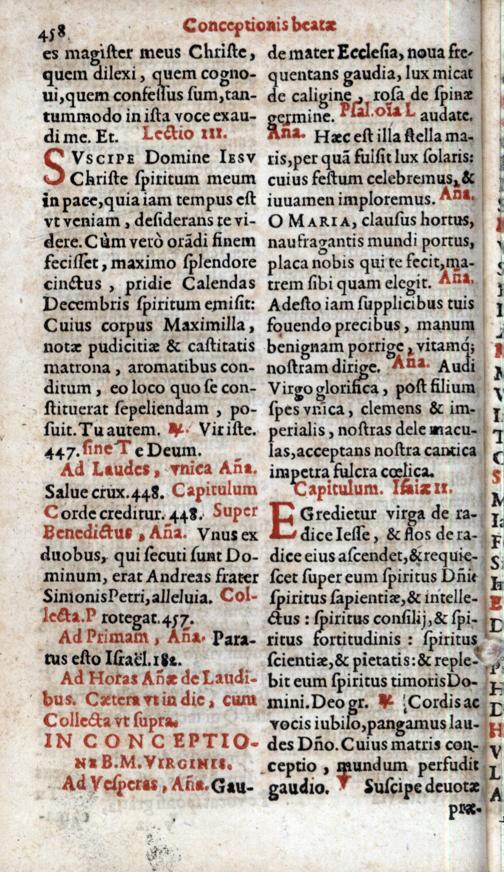 458 Conceptionis beatæ
es magiſter meus Chriſte,
quem dilexi, quem cogno-
ui, quem confeſſus ſum, tan-
tummodo in iſta voce exau-
di me. Et. Lectio III.
SVSCIPE Domine IESV
Chriſte ſpiritum meum
in pace, quia iam tempus eſt
vt veniam, deſiderans te vi-
dere. Cùm verò orãdi finem
feciſſet, maximo ſplendore
cinctus, pridie Calendas
Decembris ſpiritum emiſit:
Cuius corpus Maximilla,
notæ pudicitiæ & caſtitatis
matrona, aromatibus con-
ditum, eo loco quo ſe con-
ſtituerat ſepeliendam, po-
ſuit. Tu autem. ℟. Vir iſte.
447. ſine Te Deum.
Ad Laudes, vnica Aña.
Salue crux. 448. Capitulum
Corde creditur. 448. Super
Benedictus, Aña. Vnus ex
duobus, qui ſecuti ſunt Do-
minum, erat Andreas frater
Simonis Petri, alleluia. Col-
lecta. Protegat. 457.
Ad Primam, Aña. Para-
tus eſto Iſraël. 182.
Ad Horas Añæ de Laudi-
bus. Cætera vt in die, cum
Collecta vt ſupra.
IN CONCEPTIO-
NE B. M. VIRGINIS.
Ad Veſperas, Aña. Gau-
de mater Eccleſia, noua fre-
quentans gaudia, lux micat
de caligine, roſa de ſpinæ
germine. Pſal. oĩa Laudate.
Aña. Hæc eſt illa ſtella ma-
ris, per quã fulſit lux ſolaris:
cuius feſtum celebremus, &
iuuamen imploremus. Aña.
O MARIA, clauſus hortus,
naufragantis mundi portus,
placa nobis qui te fecit, ma-
trem ſibi quam elegit. Aña.
Adeſto iam ſupplicibus tuis
fouendo precibus, manum
benignam porrige, vitamq́;
noſtram dirige. Aña. Audi
Virgo glorifica, poſt filium
ſpes vnica, clemens & im-
perialis, noſtras dele macu-
las, acceptans noſtra cantica
impetra fulcra cœlica.
Capitulum. Iſaiæ 11.
EGredietur virga de ra-
dice Ieſſe, & flos de ra-
dice eius aſcendet, & requie-
ſcet ſuper eum ſpiritus Dñi:
ſpiritus ſapientiæ, & intelle-
ctus: ſpiritus conſilij, & ſpi-
ritus fortitudinis: ſpiritus
ſcientiæ, & pietatis: & reple-
bit eum ſpiritus timoris Do-
mini. Deo gr. ℟. Cordis ac
vocis iubilo, pangamus lau-
des Dño. Cuius matris con-
ceptio, mundum perfudit
gaudio. ℣ Suſcipe deuotæ
præ-